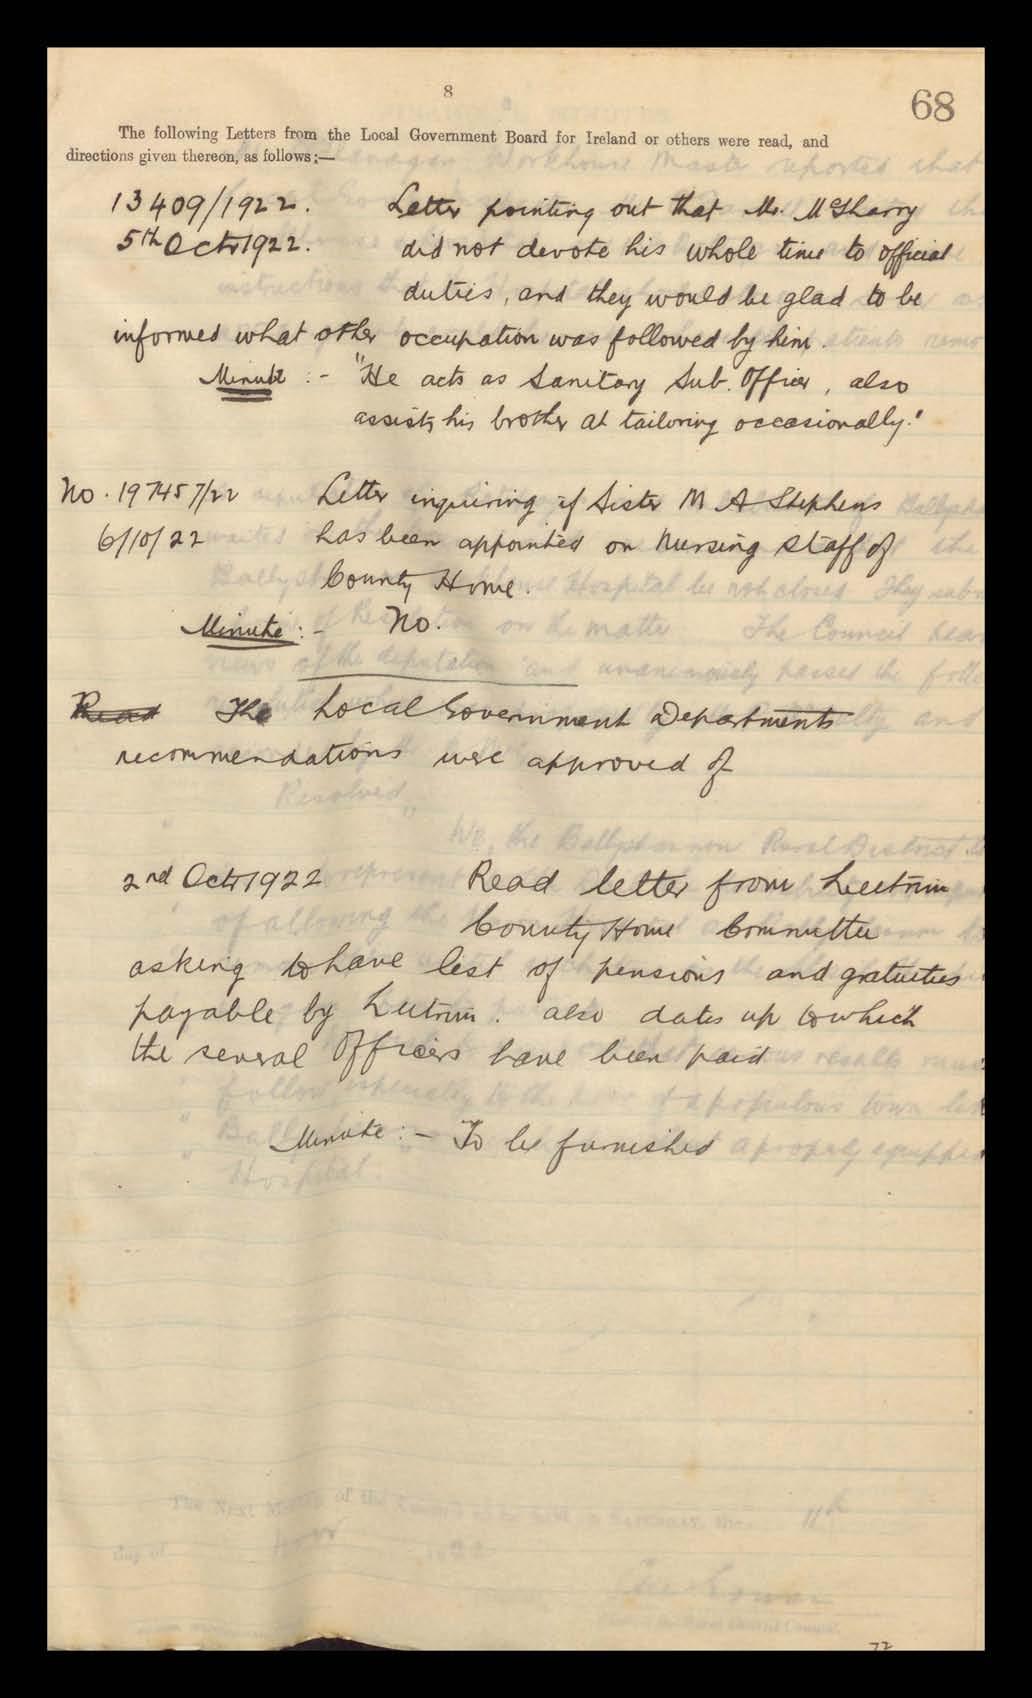 8
68
The following Letters from the Local Government Board for Ireland or others were read, and
directions given thereon, as follows:—
13409/1922. Letter pointing out that Mr. McSharry
5th Octr 1922. did not devote his whole time to official
duties, and they would be glad to be
informed what other occupation was followed by him.
Minute :- "He acts as Sanitary Sub. Officer, also
assists his brother at tailoring occasionally."
No. 197457/22 Letter inquiring if Sister M A Stephens
6/10/22 has been appointed on Nursing Staff of
County Home.
Minute :- No.
Read The Local Government Departments
recommendations were approved of
2nd Octr 1922 Read letter from Leitrim
County Home Committee
asking to have list of pensions and gratuities
payable by Leitrim. also dates up to which
the several Officers have been paid
Minute :- To be furnished